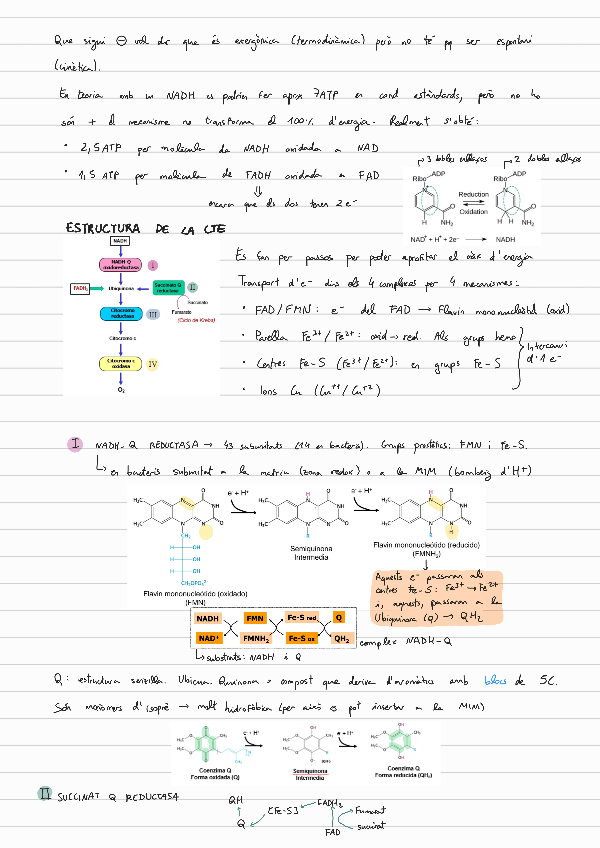 Que sigui ⊖ vol dir que és exergònica (termodinàmica) però no té pq ser espontani
(cinètica).
En teoria amb un NADH es podrien fer aprox 7ATP en cond estàndards, però no ho
són + el mecanisme no transforma el 100% d'energia. Realment s'obté:
• 2,5 ATP per molècula de NADH oxidada a NAD
• 1,5 ATP per molècula de FADH oxidada a FAD
⇓
encara que els dos tenen 2e⁻
3 dobles enllaços
2 dobles enllaços
Ribo ADP
Ribo ADP
Reduction
Oxidation
H NH₂
H H NH₂
NAD⁺ + H⁺ + 2e⁻ → NADH
ESTRUCTURA DE LA CTE
NADH
NADH Q oxidoreductasa I
FADH₂ Ubiquinona Succinato Q reductasa II
Succinato
Fumarato
(Ciclo de Krebs)
Citocromo reductasa III
Citocromo c
Citocromo c oxidasa IV
O₂
Es fan per passos per poder aprofitar el màx d'energia
Transport d'e⁻ dins els 4 complexes per 4 mecanismes:
• FAD/FMN: e⁻ del FAD → Flavin mononucleòtid (oxid)
• Parella Fe³⁺/Fe²⁺: oxid → red. Als grups hemo
• Centres Fe-S (Fe³⁺/Fe²⁺): en grups Fe-S
• Ions Cu (Cu⁺¹/Cu⁺²)
Intercanvi d'1 e⁻
I NADH-Q REDUCTASA → 43 subunitats (14 en bacteris). Grups prostètics: FMN i Fe-S.
↳ en bacteris subunitat a la matriu (zona redox) o a la MIM (bombeig d'H⁺)
e⁻ + H⁺
e⁻ + H⁺
Semiquinona
Intermedia
Flavin mononucleótido (reducido)
(FMNH₂)
CH₂OPO₃²⁻
Flavin mononucleótido (oxidado)
(FMN)
Aquests e⁻ passaran als
centres Fe-S: Fe³⁺ → Fe²⁺
i, aquests, passaran a la
Ubiquinona (Q) → QH₂
NADH FMN Fe-S red Q
NAD⁺ FMNH₂ Fe-S ox QH₂
complex NADH-Q
↳ substrats: NADH i Q
Q: estructura senzilla. Ubicua. Quinona = compost que deriva d'aromàtic amb blocs de 5C.
Són monòmers d'isoprè → molt hidrofòbica (per això es pot insertar a la MIM)
e⁻ + H⁺
e⁻ + H⁺
Coenzima Q
Forma oxidada (Q)
Semiquinona
Intermedia
Coenzima Q
Forma reducida (QH₂)
II SUCCINAT Q REDUCTASA
QH
Q
[Fe-S]
FADH₂
FAD
Fumarat
succinat